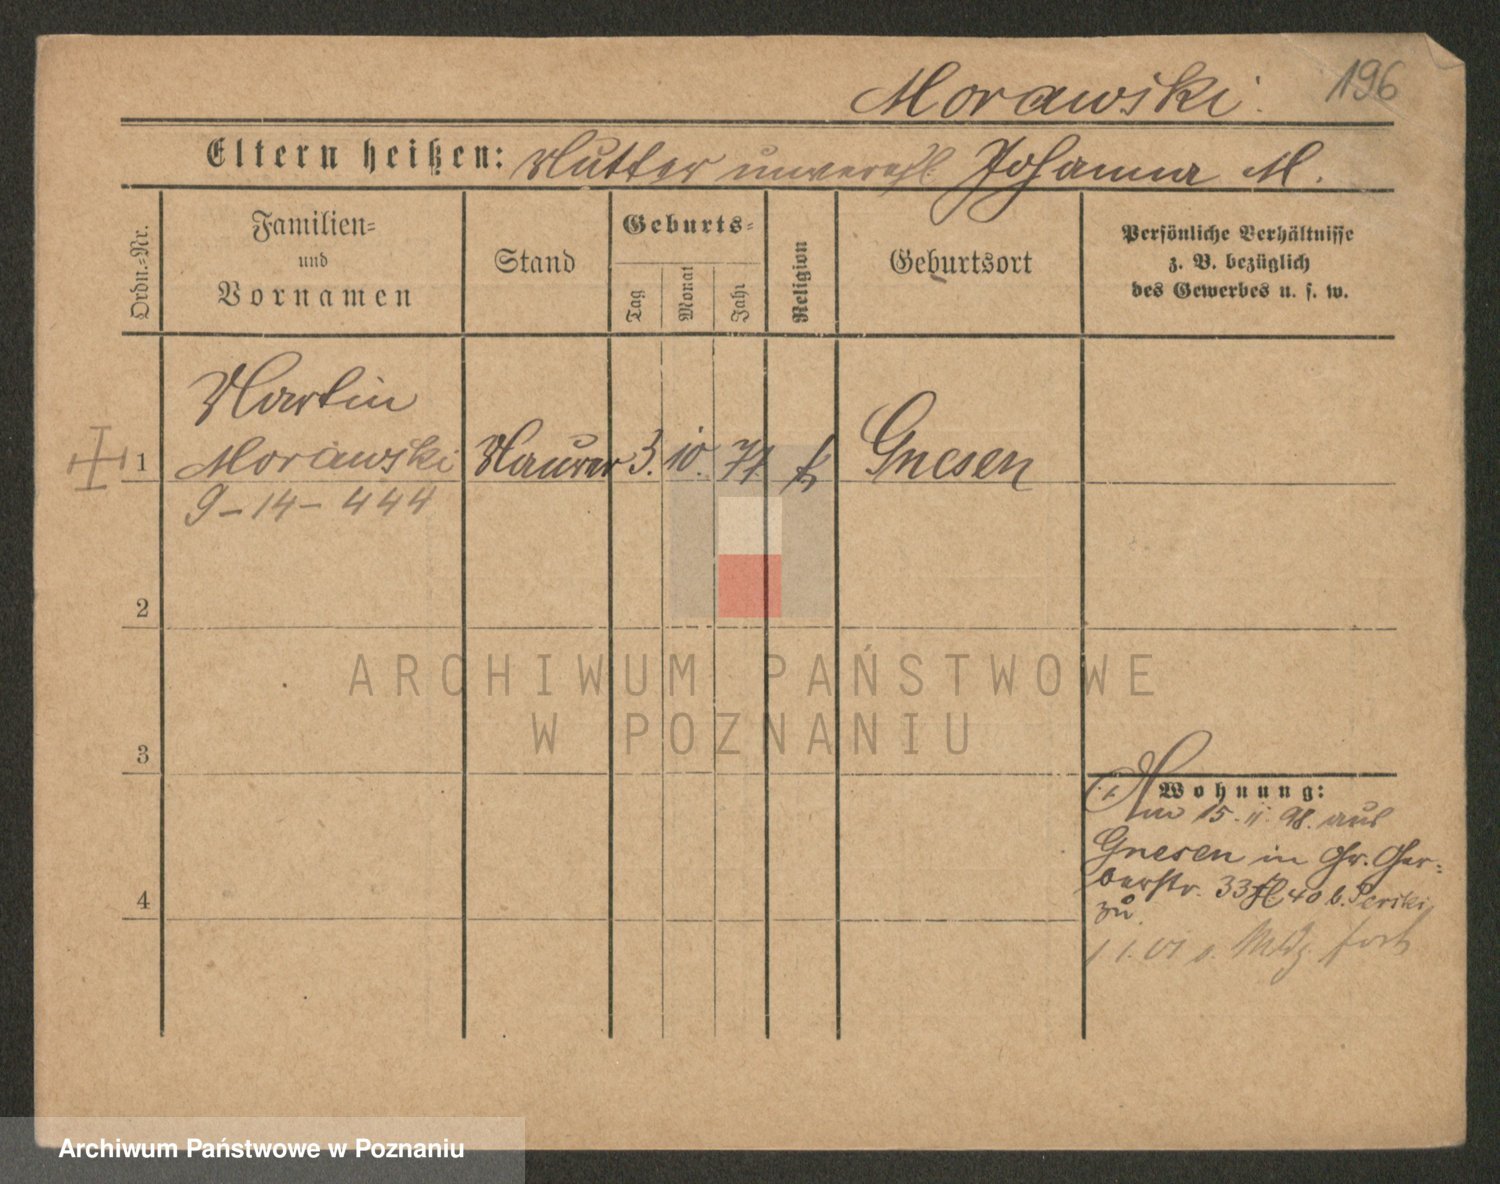 Morawski.
196
Eltern heißen: Mutter unverehl. Johanna M.
Ordn.-Nr.
Familien-
und
Vornamen
Stand
Geburts-
Tag
Monat
Jahr
Religion
Geburtsort
Persönliche Verhältnisse
z. B. bezüglich
des Gewerbes u. s. w.
Martin
1 Morawski Maurer 3. 10. 71. k Gnesen
9-14-444
2
ARCHIWUM PAŃSTWOWE
W POZNANIU
3
Wohnung:
Am 15. 11. 98. aus
Gnesen in Gr. Ger-
berstr. 33 40 b.
zu
1.1.01 o. Mldg. fort
4
Archiwum Państwowe w Poznaniu